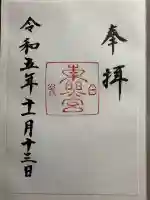 奉拝
東照宮
令和五年十二月十三日